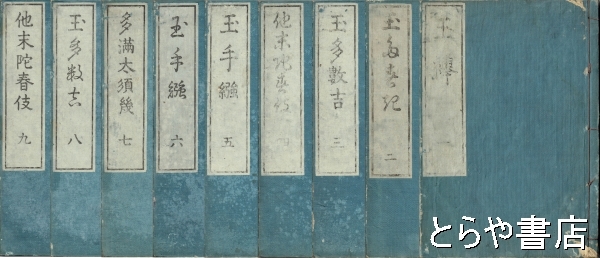 玉襷 一
玉多須記 二
玉多数吉 三
他末陀春伎 四
玉手繦 五
玉手繦 六
多満太須幾 七
玉多数吉 八
他末陀春伎 九
とらや書店